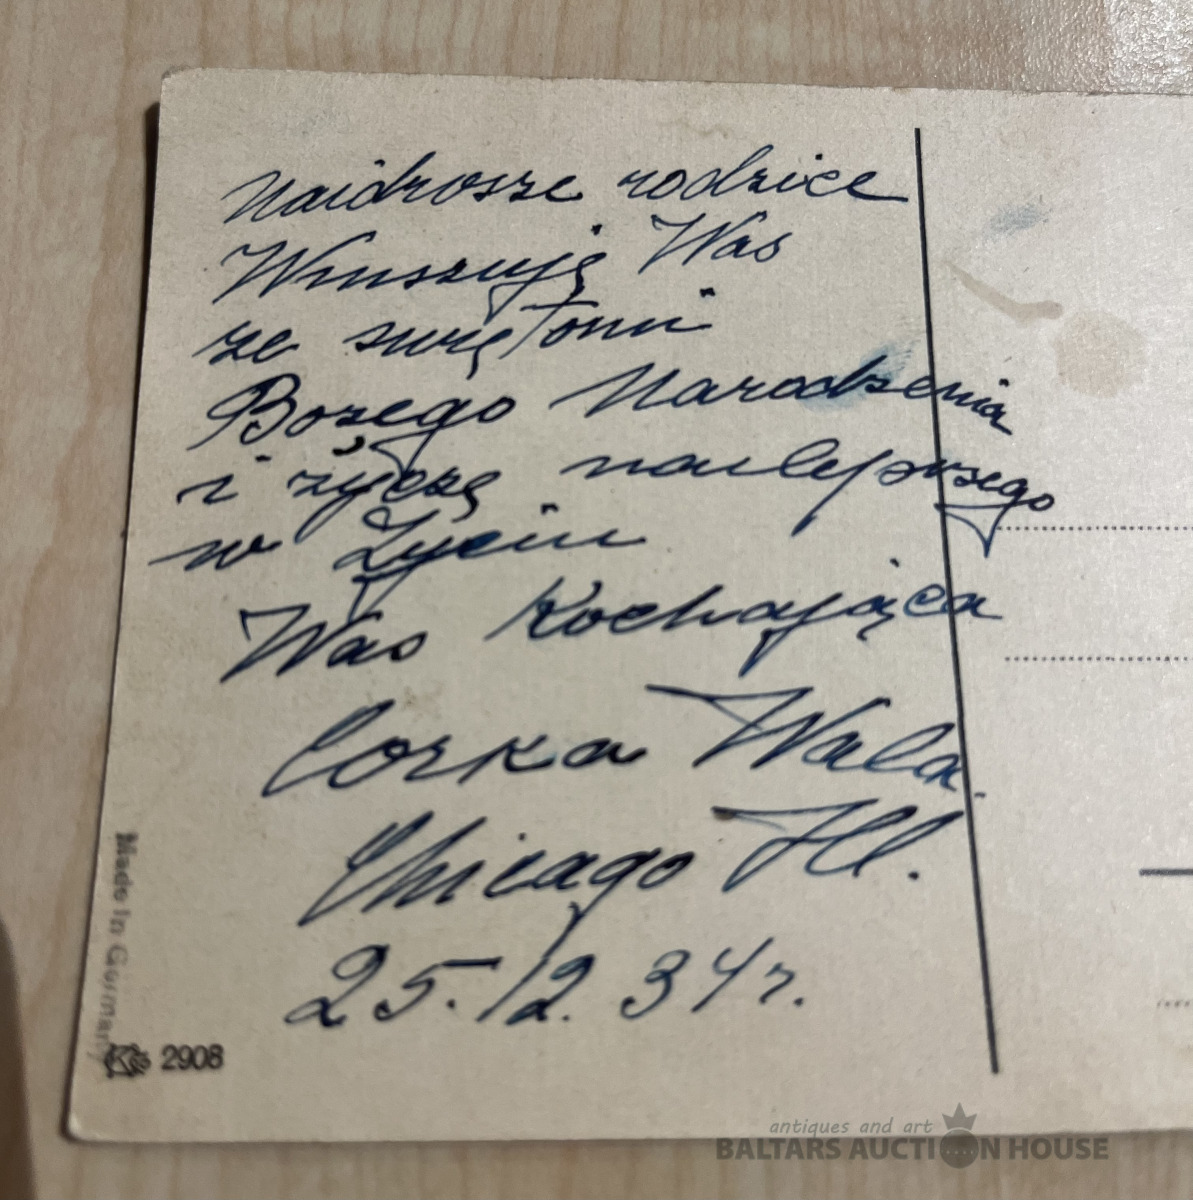 Naidrosze rodzice
Winszuję Was
ze swiętami
Bozego Narodzenia
i życzę nailepszego
w Życiu
Was Kochająca
Corka Wala.
Chicago Ill.
25.12.34 r.
Made in Germany
2908
antiques and art
BALTARS AUCTION HOUSE